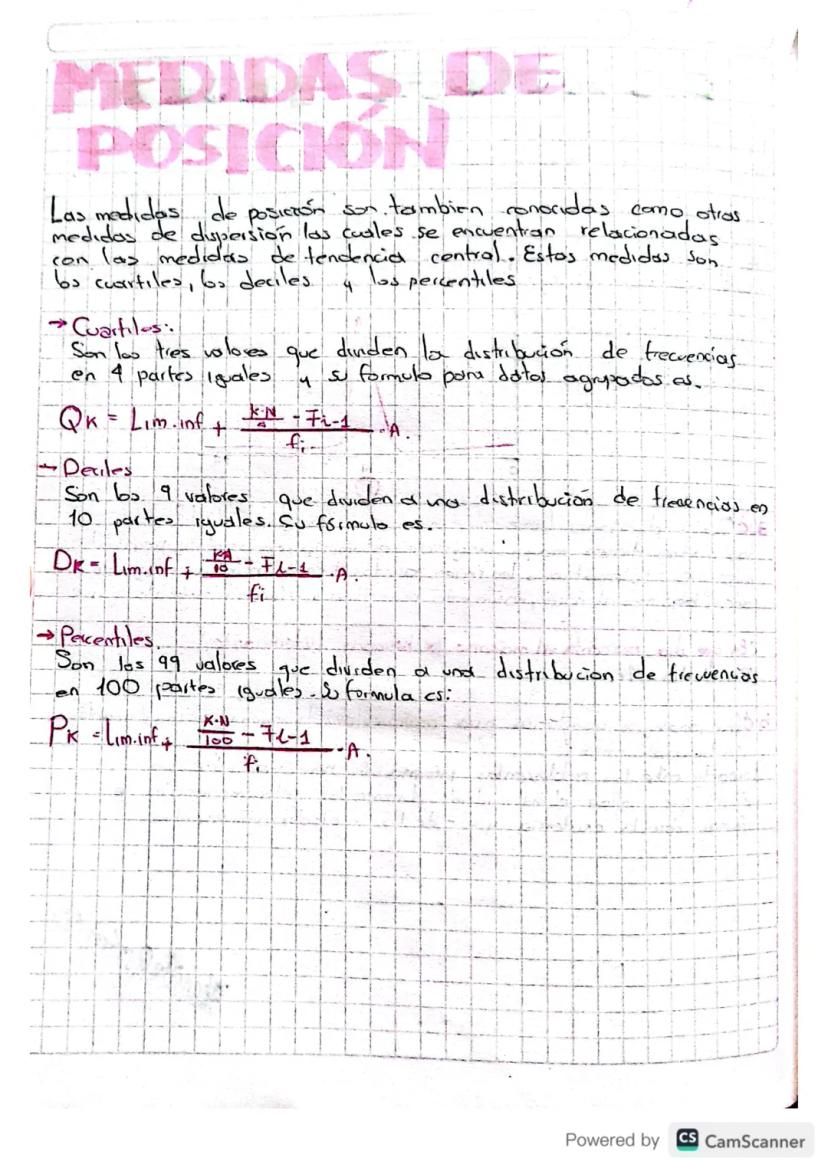 MEDIDAS DE
POSICIÓN
Las medidas de posición son tambien conocidas como otras
medidas de dispersión las cuales se encuentran relacionadas
con las medidas de tendencia central. Estas medidas son
los cuartiles, los deciles y los percentiles
→ Cuartiles:
Son los tres valores que dividen la distribución de frecuencias
en 4 partes iguales y su formula para datos agrupados es.
QK = Lim.inf + (K·N/4 - Fi-1)/fi · A.
→ Deciles
Son los 9 valores que dividen a una distribución de frecuencias en
10 partes iguales. Su fórmula es.
DK = Lim.inf + (KN/10 - Fi-1)/fi · A.
→ Percentiles.
Son los 99 valores que dividen a una distribucion de frecuencias
en 100 partes iguales. Su formula es:
PK = Lim.inf + (K·N/100 - Fi-1)/fi · A.
Powered by CS CamScanner